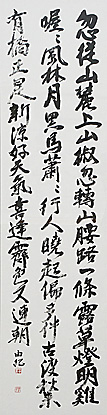 忽從山麓上山椒忽轉山腰路一條露草燈明雞
喔喔風林月黑馬蕭蕭行人曉起傷多料古渡秋業
有橋正是新涼好天氣喜逢霽色又連朝